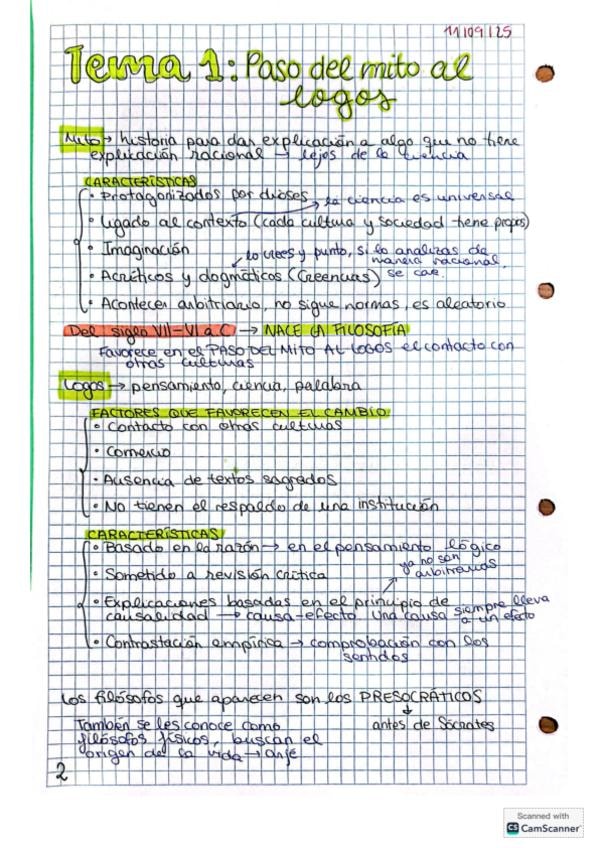 11/09/25
Tema 1: Paso del mito al
logos
Mito → historia para dar explicación a algo que no tiene
explicación racional → lejos de la ciencia
CARACTERÍSTICAS
• Protagonizados por dioses
→ la ciencia es universal
• Ligado al contexto (cada cultura y sociedad tiene propios)
• Imaginación
lo crees y punto, si lo analizas de
manera racional,
• Acríticos y dogmáticos (Creencias) se cae.
• Acontecer arbitrario, no sigue normas, es aleatorio
Del siglo VII-VI a.C → NACE LA FILOSOFÍA
Favorece en el PASO DEL MITO AL LOGOS el contacto con
otras culturas
Logos → pensamiento, ciencia, palabra
FACTORES QUE FAVORECEN EL CAMBIO
• Contacto con otras culturas
• Comercio
• Ausencia de textos sagrados
• No tienen el respaldo de una institución
CARACTERÍSTICAS
• Basado en la razón → en el pensamiento lógico
ya no son
arbitrarias
• Sometido a revisión crítica
• Explicaciones basadas en el principio de
causalidad → causa-efecto. Una causa siempre lleva
a un efecto
• Contrastación empírica → comprobación con los
sentidos
Los filósofos que aparecen son los PRESOCRÁTICOS
↓
antes de Sócrates
También se les conoce como
filósofos físicos, buscan el
origen de la vida → Arjé
2
Scanned with
CS CamScanner